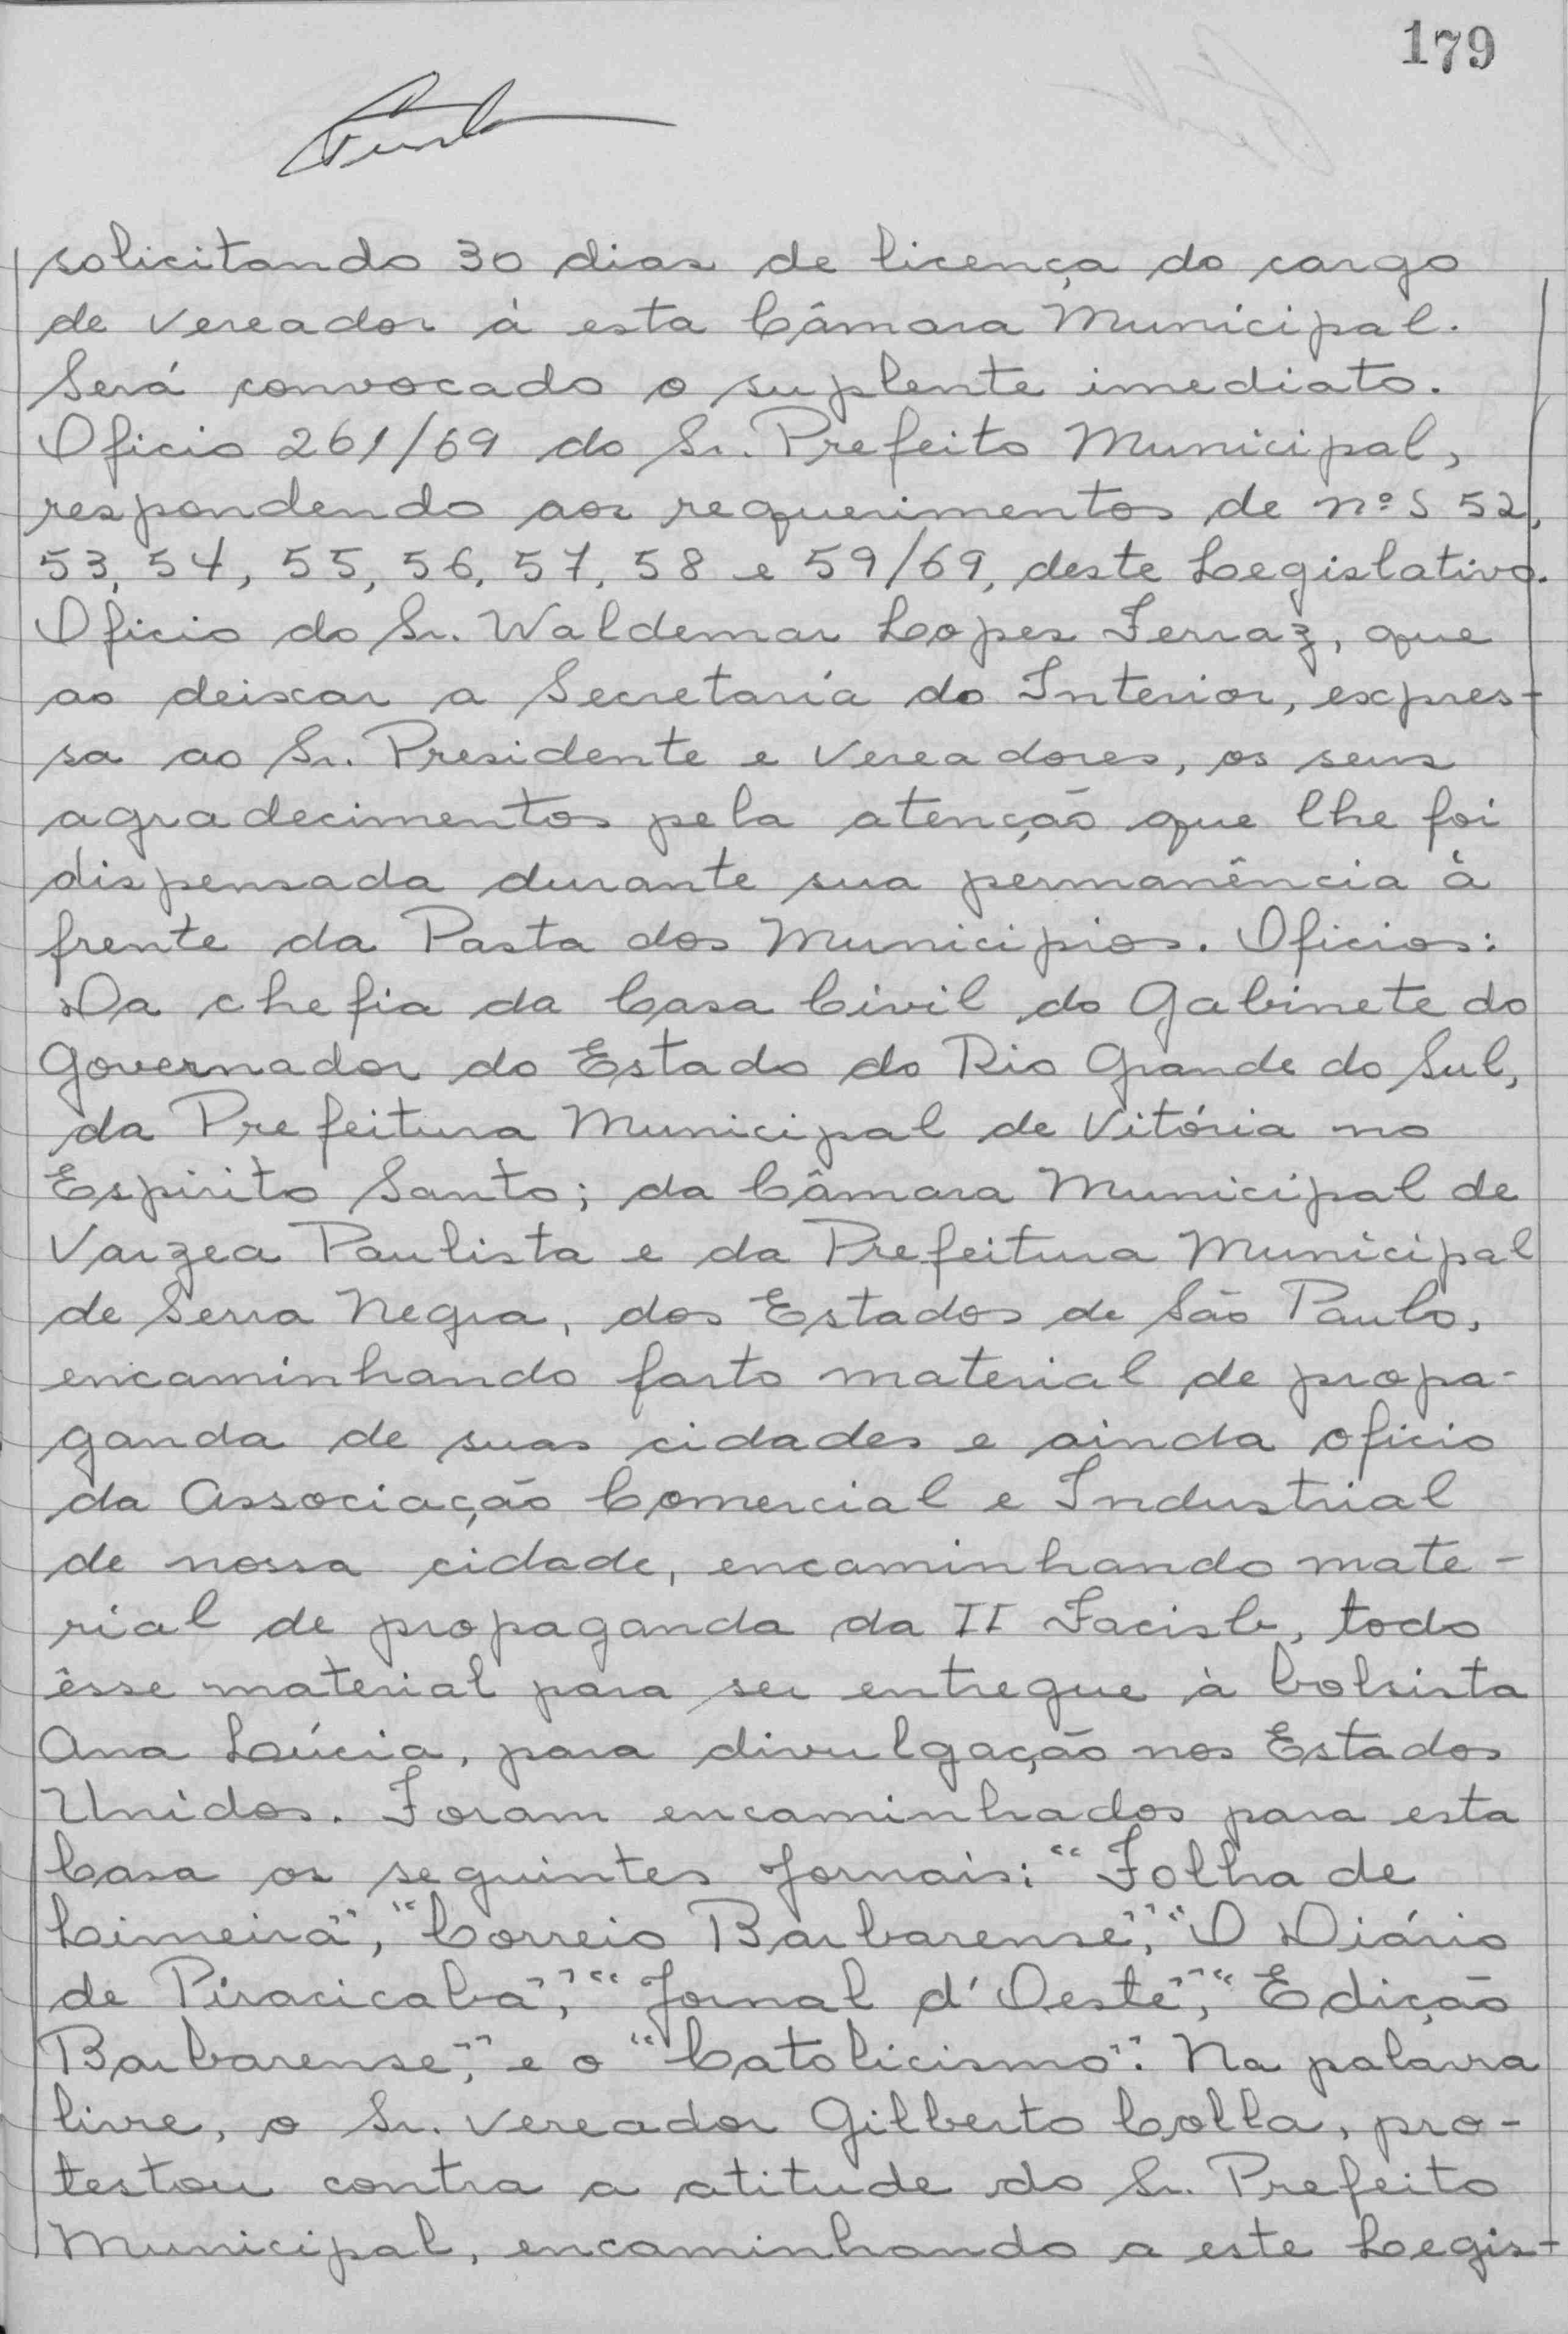 179
solicitando 30 dias de licença do cargo
de vereador à esta Câmara Municipal.
Será convocado o suplente imediato.
Oficio 261/69 do Sr. Prefeito Municipal,
respondendo aos requerimentos de nºs 52,
53, 54, 55, 56, 57, 58 e 59/69, deste Legislativo.
Oficio do Sr. Waldemar Lopes Ferraz, que
ao deixar a Secretaria do Interior, expres-
sa ao Sr. Presidente e Vereadores, os seus
agradecimentos pela atenção que lhe foi
dispensada durante sua permanência à
frente da Pasta dos Municipios. Oficios:
Da chefia da Casa Civil do Gabinete do
Governador do Estado do Rio Grande do Sul,
da Prefeitura Municipal de Vitória no
Espirito Santo; da Câmara Municipal de
Varzea Paulista e da Prefeitura Municipal
de Serra Negra, dos Estados de São Paulo,
encaminhando farto material de propa-
ganda de suas cidades e ainda oficio
da Associação Comercial e Industrial
de nossa cidade, encaminhando mate-
rial de propaganda da II Facisb, todo
êsse material para ser entregue à bolsista
Ana Lúcia, para divulgação nos Estados
Unidos. Foram encaminhados para esta
Casa os seguintes Jornais: "Folha de
Limeira", "Correio Barbarense", "O Diário
de Piracicaba", "Jornal d'Oeste", "Edição
Barbarense", e o "Catolicismo". Na palavra
livre, o Sr. vereador Gilberto Colla, pro-
testou contra a atitude do Sr. Prefeito
Municipal, encaminhando a este Legis-